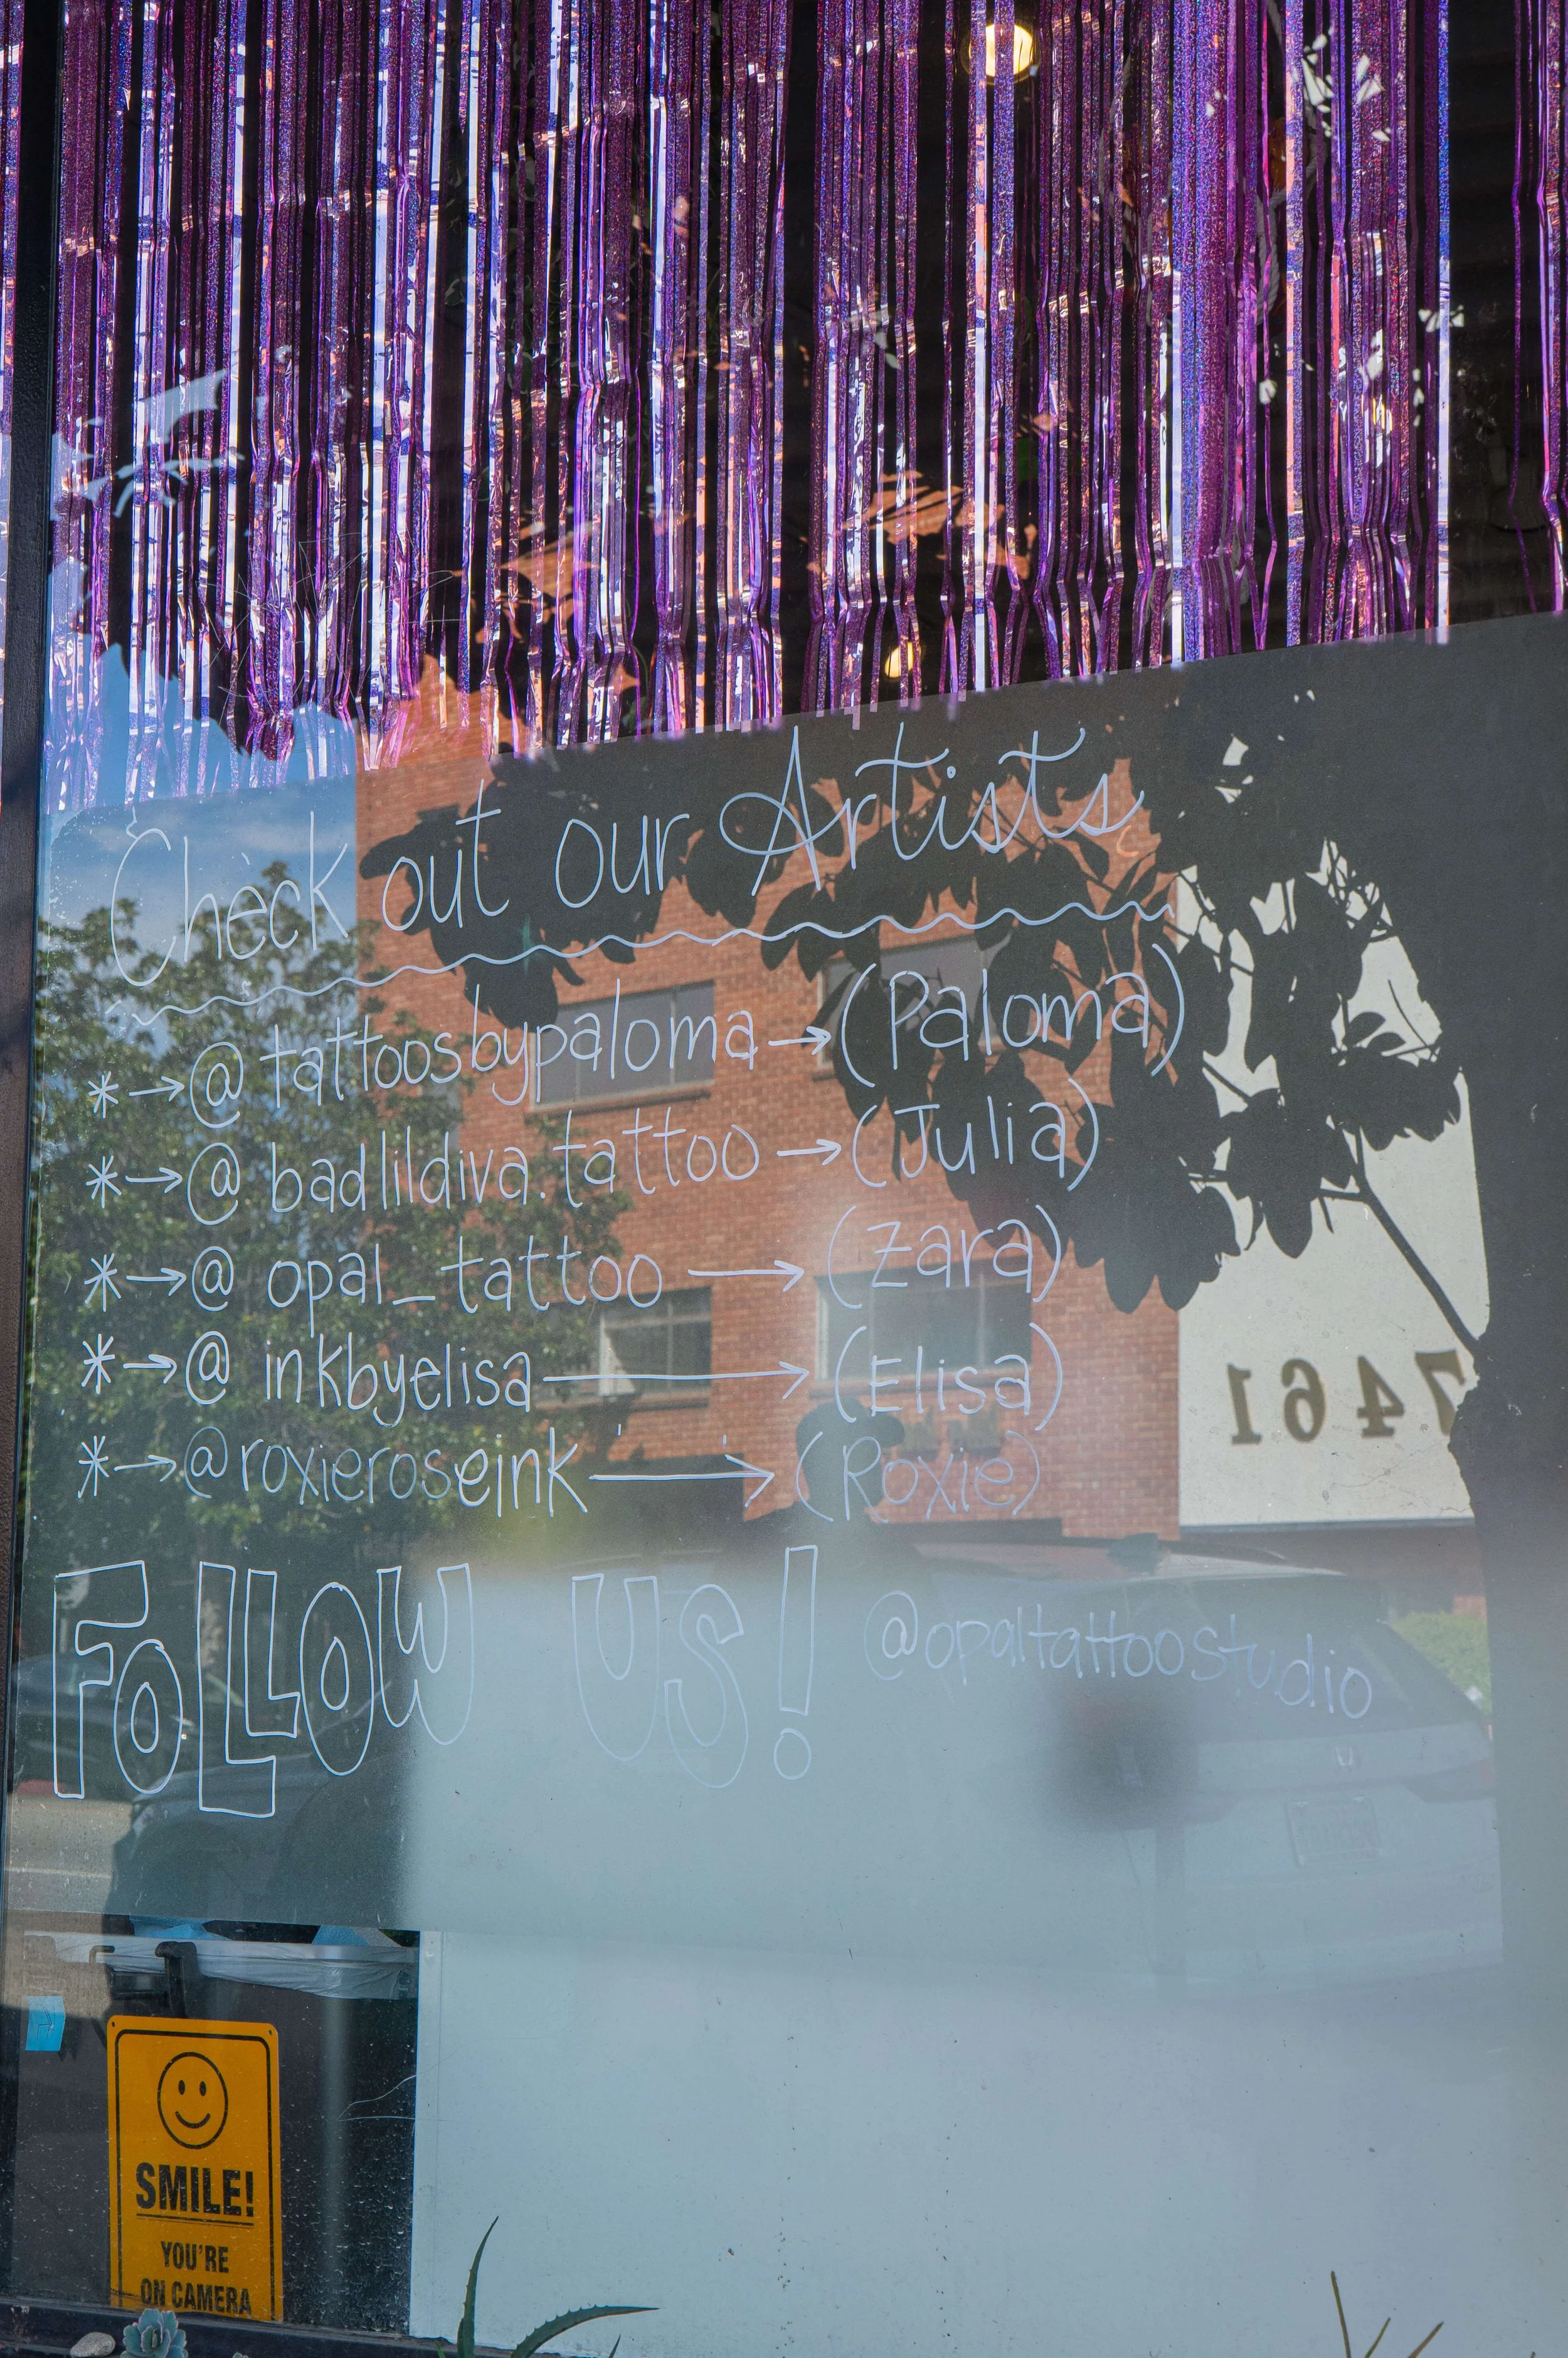 Check out our Artists
*→@tattoosbypaloma→(Paloma)
*→@badlildiva.tattoo→(Julia)
*→@opal_tattoo→(Zara)
*→@inkbyelisa→(Elisa)
*→@roxieroseink→(Roxie)
FOLLOW US! @opaltattoostudio
7461
SMILE!
YOU'RE
ON CAMERA